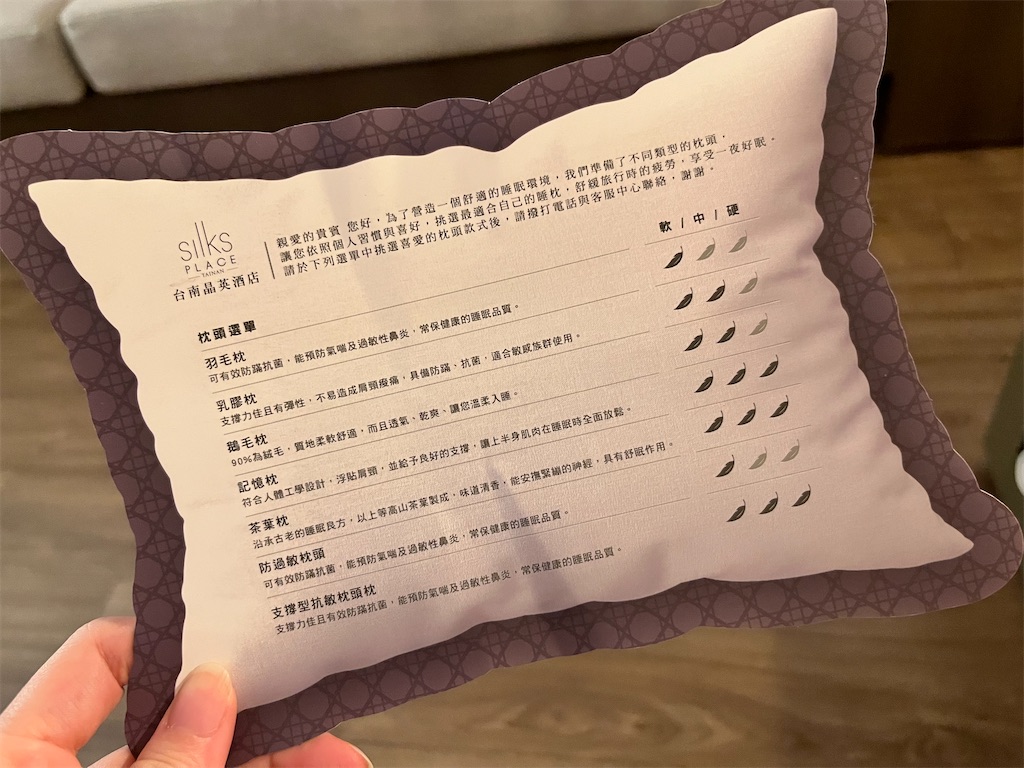 silks
PLACE
TAINAN
台南晶英酒店
親愛的貴賓 您好，為了營造一個舒適的睡眠環境，我們準備了不同類型的枕頭，
讓您依照個人習慣與喜好，挑選最適合自己的睡枕，舒緩旅行時的疲勞，享受一夜好眠。
請於下列選單中挑選喜愛的枕頭款式後，請撥打電話與客服中心聯絡，謝謝。
枕頭選單
軟 / 中 / 硬
羽毛枕
可有效防蹣抗菌，能預防氣喘及過敏性鼻炎，常保健康的睡眠品質。
乳膠枕
支撐力佳且有彈性，不易造成肩頸痠痛，具備防蹣、抗菌，適合敏感族群使用。
鵝毛枕
90%為絨毛，質地柔軟舒適，而且透氣、乾爽、讓您溫柔入睡。
記憶枕
符合人體工學設計，浮貼肩頸，並給予良好的支撐，讓上半身肌肉在睡眠時全面放鬆。
茶葉枕
沿承古老的睡眠良方，以上等高山茶葉製成，味道清香，能安撫緊繃的神經，具有舒眠作用。
防過敏枕頭
可有效防蹣抗菌，能預防氣喘及過敏性鼻炎，常保健康的睡眠品質。
支撐型抗敏枕頭枕
支撐力佳且有效防蹣抗菌，能預防氣喘及過敏性鼻炎，常保健康的睡眠品質。